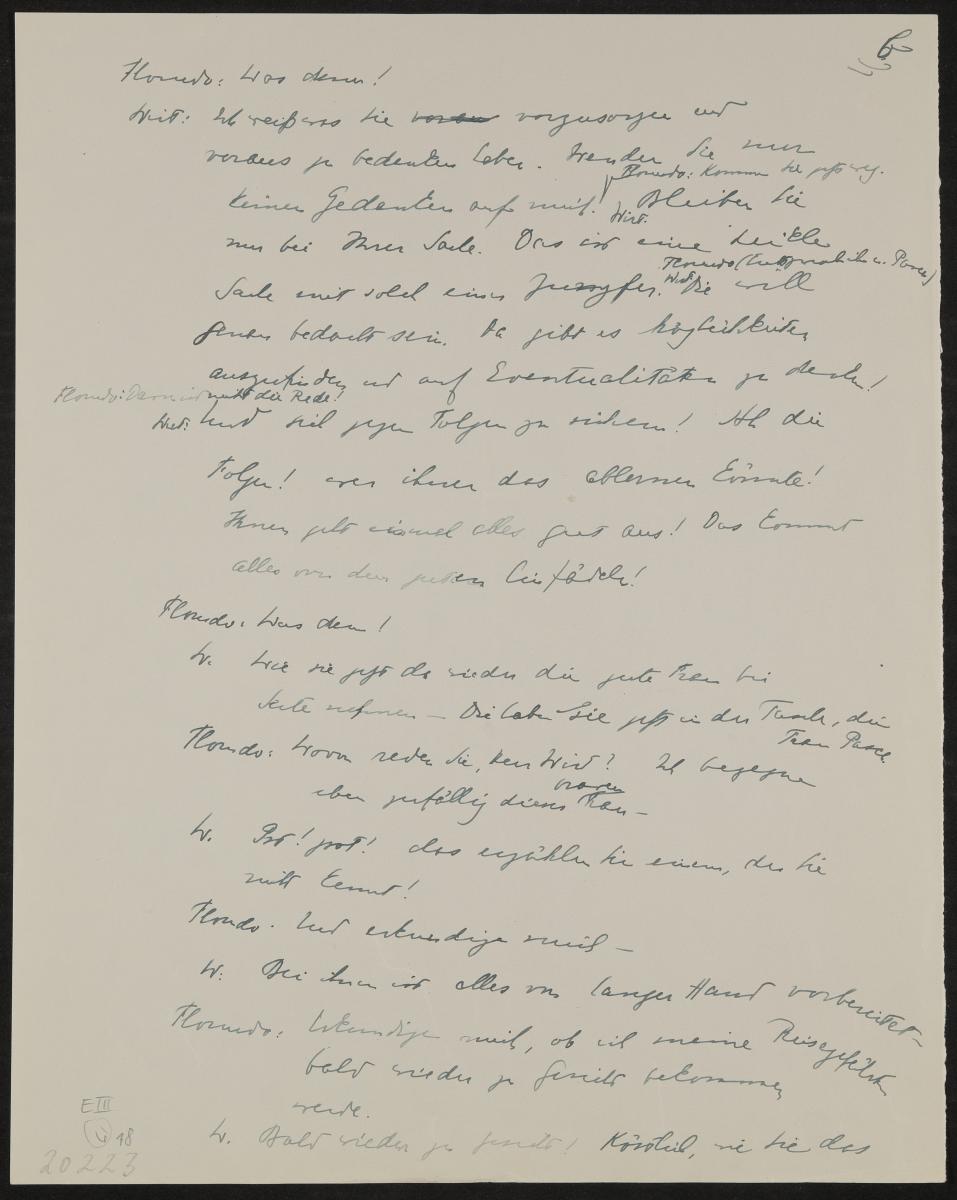 6
Florindo: Was denn!
Wirt: Ich weiß was Sie voraus vorzusorgen und
voraus zu bedenken haben. Wenden Sie nur
Florindo: Kommen Sie jetzt weg.
keinen Gedanken auf mich! Wirt: Bleiben Sie
nur bei Ihrer Sache. Das ist eine heikle
Florindo (
Sache mit solch einer Jungfer. Wirt: Die will
genau bedacht sein. Da gibt es Möglichkeiten
auszufinden und auf Eventualitäten zu denken!
Florindo: Davon ist nicht die Rede!
Wirt: Und sich gegen Folgen zu sichern! Ah die
Folgen! wer ihnen das ablernen könnte!
Ihnen geht einmal alles gut aus! Das kommt
alles von dem guten Einfädeln!
Florindo: Was denn!
W. Wie sie jetzt da wieder die gute Frau bei
Seite nehmen – Die haben Sie jetzt in der Tasche, die
Frau Pasca.
Florindo: Wovon reden Sie, Herr Wirt? Ich begegne
eben zufällig dieser braven Frau –
W. Pst! pst! das erzählen Sie einem, der Sie
nicht kennt!
Florindo. Und erkundige mich –
W: Bei ihnen ist alles von langer Hand vorbereitet –
Florindo: Erkundige mich, ob ich meine Reisegefährten
bald wieder zu Gesicht bekommen
werde.
W. Bald wieder zu Gesicht! Köstlich, wie Sie das
E III
48
20223